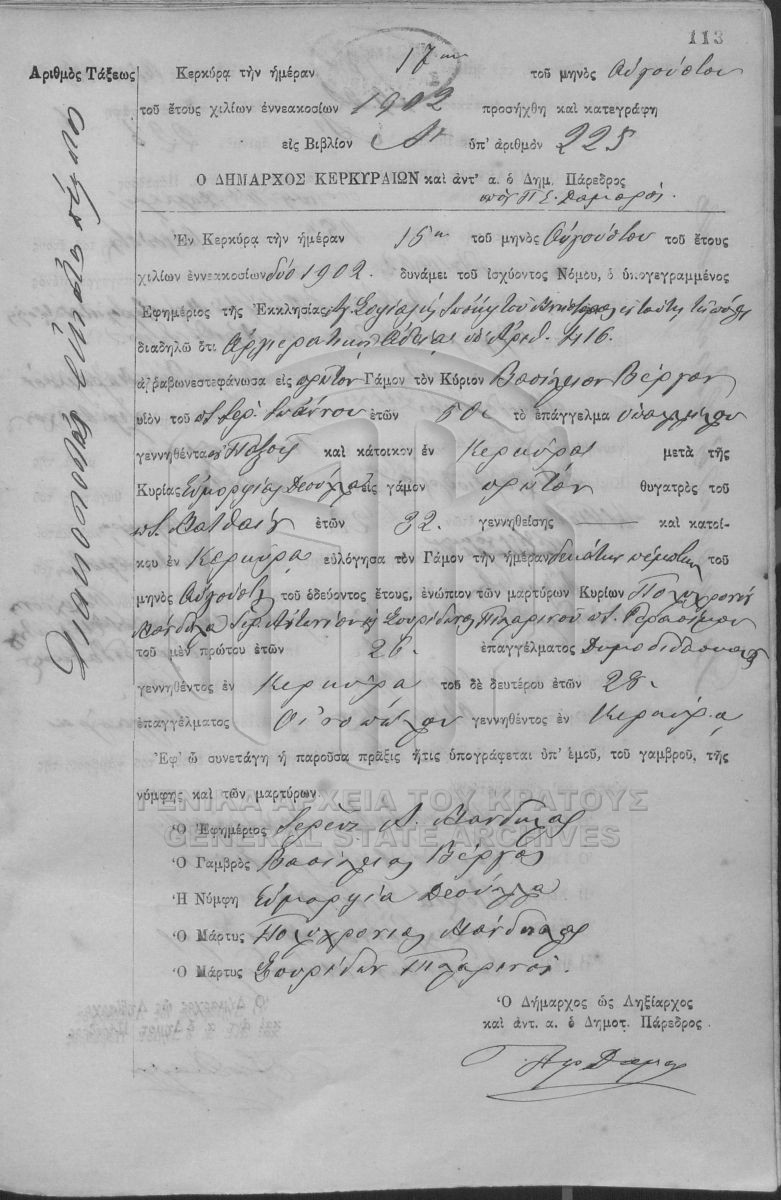 113
Ἀριθμὸς Τάξεως
Κερκύρᾳ τὴν ἡμέραν 17ην τοῦ μηνὸς Αὐγούστου
τοῦ ἔτους χιλίων ἐννεακοσίων 1902 προσήχθη καὶ κατεγράφη
εἰς Βιβλίον ὑπ' ἀριθμὸν 225
Ὁ ΔΗΜΑΡΧΟΣ ΚΕΡΚΥΡΑΙΩΝ καὶ ἀντ' α. ὁ Δημ. Πάρεδρος
Ἐν Κερκύρᾳ τὴν ἡμέραν 15ην τοῦ μηνὸς Αὐγούστου τοῦ ἔτους
χιλίων ἐννεακοσίων δύο 1902. δυνάμει τοῦ ἰσχύοντος Νόμου, ὁ ὑπογεγραμμένος
Ἐφημέριος τῆς Ἐκκλησίας
διαδηλῶ ὅτι Ἀρχιερατικῇ Ἀδείᾳ ὑπ' Ἀριθ. 416.
ἀῤῥαβωνεστεφάνωσα εἰς πρῶτον Γάμον τὸν Κύριον Βασίλειον Βέργον
υἱὸν τοῦ ποτ. Ἰωάννου ἐτῶν 50 τὸ ἐπάγγελμα ὑπάλληλον
γεννηθέντα Παξοῖς καὶ κάτοικον ἐν Κερκύρᾳ μετὰ τῆς
Κυρίας Εὐμορφίας εἰς γάμον πρῶτον θυγατρὸς τοῦ
ποτ. Ματθαίου ἐτῶν 32. γεννηθείσης — καὶ κατοί-
κου ἐν Κερκύρᾳ εὐλόγησα τὸν Γάμον τὴν ἡμέραν δεκάτην πέμπτην τοῦ
μηνὸς Αὐγούστου τοῦ ὁδεύοντος ἔτους, ἐνώπιον τῶν μαρτύρων Κυρίων Πολυχρονίου
Σπυρίδωνος Πιλαρινοῦ ποτ. Γερασίμου
τοῦ μὲν πρώτου ἐτῶν 26 ἐπαγγέλματος Δημοδιδάσκαλος
γεννηθέντος ἐν Κερκύρᾳ τοῦ δὲ δευτέρου ἐτῶν 28.
ἐπαγγέλματος Οἰνοπώλου γεννηθέντος ἐν Κερκύρᾳ
Ἐφ' ᾧ συνετάγη ἡ παροῦσα πρᾶξις ἥτις ὑπογράφεται ὑπ' ἐμοῦ, τοῦ γαμβροῦ, τῆς
νύμφης καὶ τῶν μαρτύρων.
ΓΕΝΙΚΑ ΑΡΧΕΙΑ ΤΟΥ ΚΡΑΤΟΥΣ
GENERAL STATE ARCHIVES
Ὁ Ἐφημέριος
Ὁ Γαμβρὸς Βασίλειος Βέργος
Ἡ Νύμφη Εὐμορφία
Ὁ Μάρτυς Πολυχρόνιος
Ὁ Μάρτυς Σπυρίδων Πιλαρινός.
Ὁ Δήμαρχος ὡς Ληξίαρχος
καὶ ἀντ. α. ὁ Δημοτ. Πάρεδρος